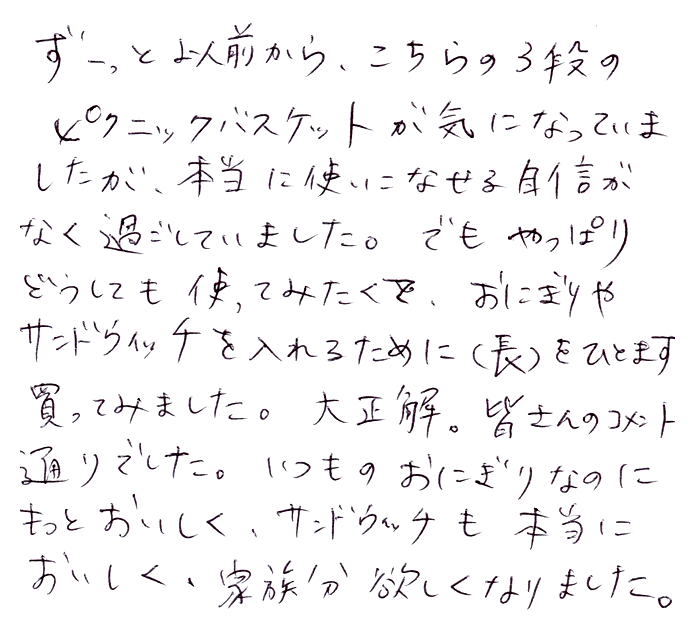 ずーっと以前から、こちらの3段の
ピクニックバスケットが気になっていま
したが、本当に使いこなせる自信が
なく過ごしていました。でもやっぱり
どうしても使ってみたくて、おにぎりや
サンドウィッチを入れるために(長)をひとます
買ってみました。大正解。皆さんのコメント
通りでした。いつものおにぎりなのに
もっとおいしく、サンドウィッチも本当に
おいしく、家族分欲しくなりました。